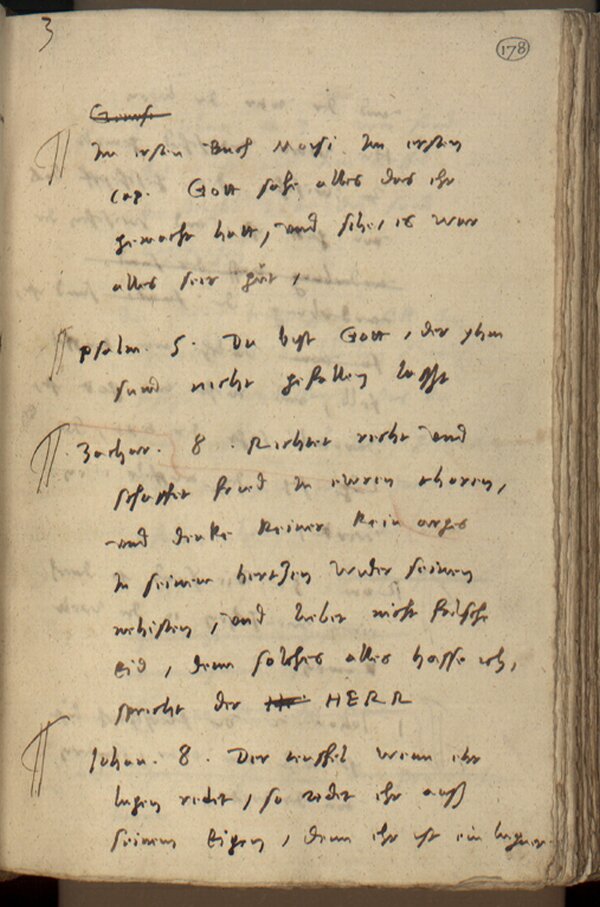 3
178
Genesi
Im ersten Buch Mosi Im ersten
cap. Gott sahe alles das ehr
gemacht hatt, und sihe, es war
alles seer gůt,
psalm. 5. Du bist Gott, der yhm
sund nicht gefallen lasst
Zachar. 8. Richtet recht und
schaffet fried In ewren thoren,
und denke keiner kein arges
In seinem hertzen wider seinen
nehisten, und liebet nicht falsche
Eid, denn solches alles hasse ich,
spricht der HERR
Johan. 8. Der teuffel wenn ehr
lugen redet, so redet ehr auß
seinem Eigen, denn ehr ist ein lugner